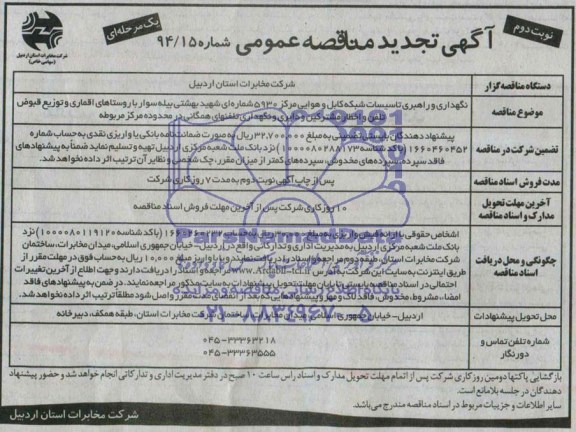 نوبت دوم
آگهی تجدید مناقصه عمومی شماره ۹۴/۱۵
یک مرحله‌ای
شرکت مخابرات استان اردبیل
(سهامی خاص)
دستگاه مناقصه‌گزار
شرکت مخابرات استان اردبیل
موضوع مناقصه
نگهداری و راهبری تاسیسات شبکه کابل و هوایی مرکز ۵۹۳۰ شماره‌ای شهید بهشتی بیله سوار با روستاهای اقماری و توزیع قبوض
تلفن و اخطار مشترکین و دایری و نگهداری تلفنهای همگانی در محدوده مرکز مربوطه
تضمین شرکت در مناقصه
پیشنهاد دهندگان بایستی تضمینی به مبلغ ۳۲,۷۰۰,۰۰۰ ریال به صورت ضمانت‌نامه بانکی یا واریزی نقدی به حساب شماره
نزد بانک ملت شعبه مرکزی اردبیل تهیه و تسلیم نماید ضمناً به پیشنهادهای
فاقد سپرده، سپرده‌های مخدوش، سپرده‌های کمتر از میزان مقرر، چک شخصی و نظایر آن ترتیب اثر داده نخواهد شد.
مدت فروش اسناد مناقصه
پس از چاپ آگهی نوبت دوم به مدت ۷ روز کاری شرکت
آخرین مهلت تحویل
مدارک و اسناد مناقصه
۱۰ روز کاری شرکت پس از آخرین مهلت فروش اسناد مناقصه
چگونگی و محل دریافت
اسناد مناقصه
اشخاص حقوقی با ارائه فیش واریزی به مبلغ
نزد
بانک ملت شعبه مرکزی اردبیل به مدیریت اداری و تدارکاتی واقع در اردبیل- خیابان جمهوری اسلامی، میدان مخابرات، ساختمان
شرکت مخابرات استان، طبقه دوم مراجعه و اسناد را دریافت نمایند و یا با واریز مبلغ ۱۰,۰۰۰ ریال به حساب فوق در مهلت مقرر از
طریق اینترنت به سایت این شرکت به آدرس www.Ardabil-tci.ir مراجعه و اسناد را دریافت دارند و جهت اطلاع از آخرین تغییرات
احتمالی در اسناد مناقصه بایستی تا پایان مهلت تحویل پیشنهادات به سایت مذکور مراجعه نمایند. در ضمن به پیشنهادهای فاقد
امضا، مشروط، مخدوش، فاقد لاک و مهر و پیشنهادهایی که بعد از انقضای مدت مقرر واصل شود مطلقا ترتیب اثر داده نخواهد شد.
محل تحویل پیشنهادات
اردبیل- خیابان جمهوری اسلامی، میدان مخابرات، ساختمان شرکت مخابرات استان، طبقه همکف، دبیرخانه
شماره تلفن تماس و
دورنگار
۰۴۵-۳۳۳۶۳۲۱۸
۰۴۵-۳۳۳۶۳۵۵۵
بازگشایی پاکتها دومین روز کاری شرکت پس از اتمام مهلت تحویل مدارک و اسناد راس ساعت ۱۰ صبح در دفتر مدیریت اداری و تدارکاتی انجام خواهد شد و حضور پیشنهاد
دهندگان در جلسه بلامانع است.
سایر اطلاعات و جزییات مربوط در اسناد مناقصه مندرج می‌باشد.
شرکت مخابرات استان اردبیل
ParsNamadData
پایگاه اطلاع رسانی مناقصه و مزایده
۰۲۱-۸۸۳۴۹۶۷۰-۵